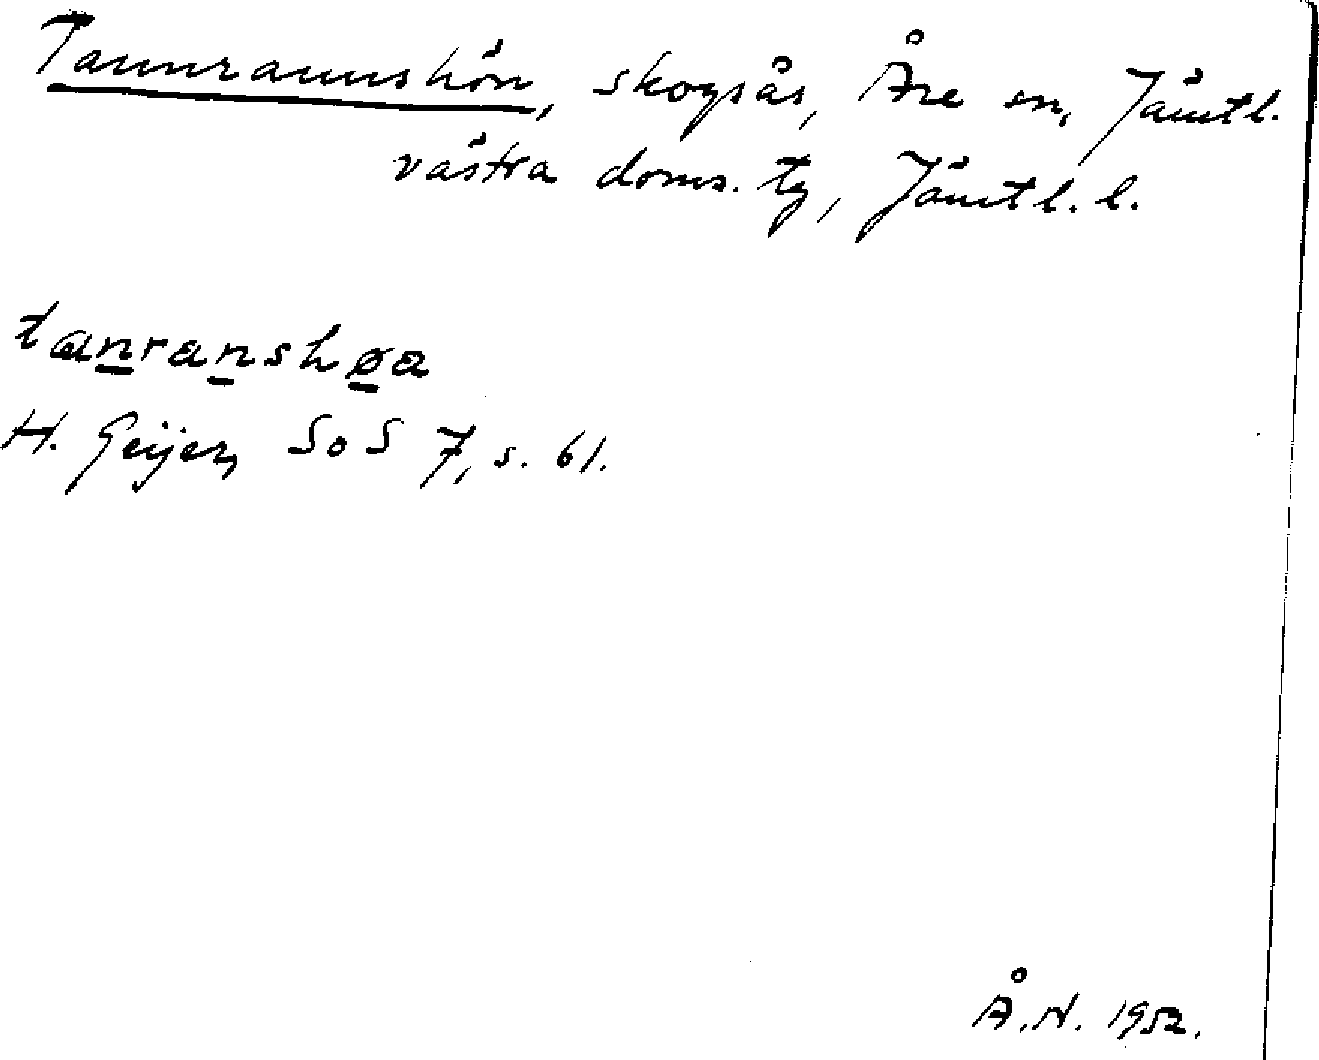 Tannrannshön, skogsås, Åre sn, Jämtl.
västra doms. tg, Jämtl. l.
tanranshøa
H. Geijer, SoS 7, s. 61.
Å.N. 1952.